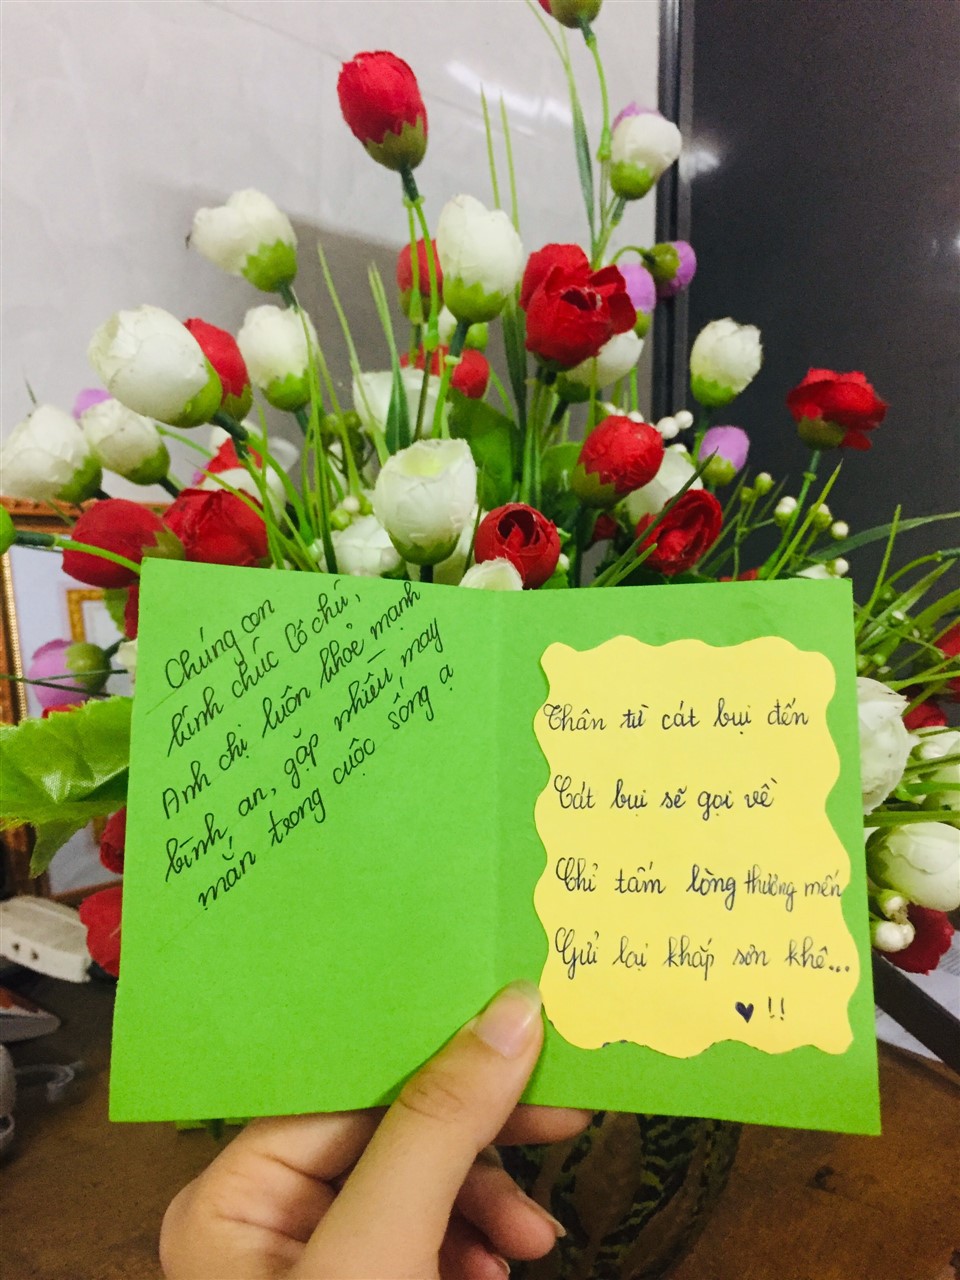 Chúng con
kính chúc Cô chú,
Anh chị luôn khỏe mạnh
bình an, gặp nhiều may
mắn trong cuộc sống ạ
Thân từ cát bụi đến
Cát bụi sẽ gọi về
Chỉ tấm lòng thương mến
Gửi lại khắp sơn khê...
♥ !!